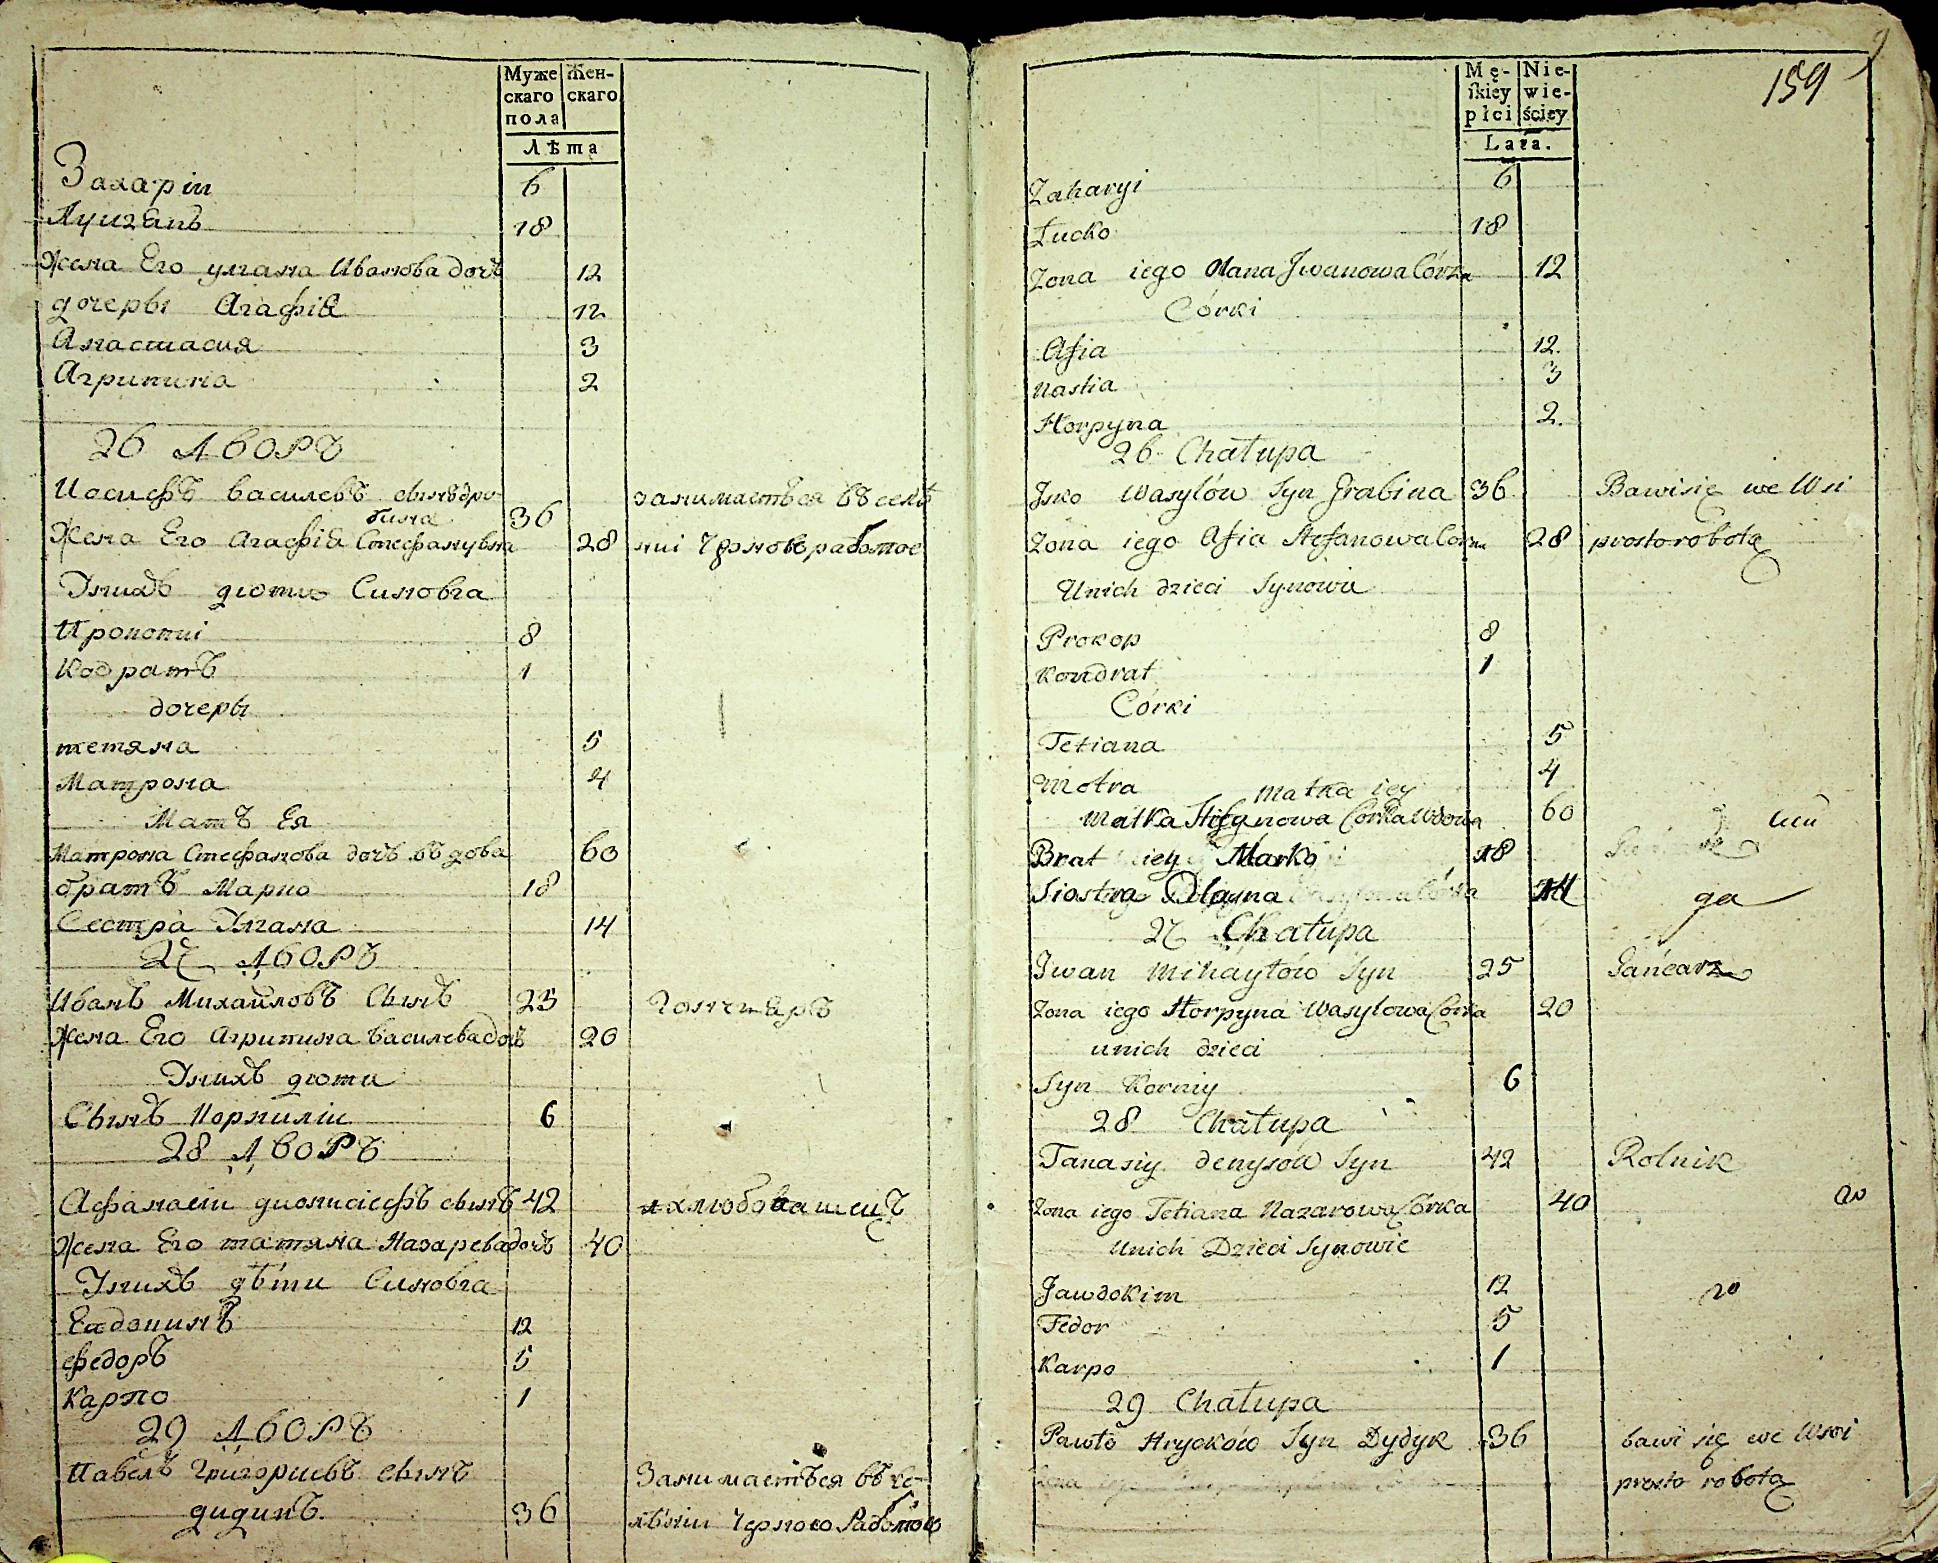 Муже Жен-
скаго скаго
пола
Лѣта
Захарiи 6
Лукианъ 18
Жена Его улiана Иванова дочъ 12
дочеры Агафiя 12
Анастасия 3
Агрипина 2
26 ДВОРЪ
Иосифъ василевъ сынъ гра- занимаетъся въ селѣ
бина 36
Жена Его Агафiя Стефанувна 28 нiи Чорною работою
Унихъ дюти Синовья
Прокопiи 8
Кодратъ 1
дочеры
тетяна 5
Матрона 4
Матъ Ея
Матрона Стефанова дочъ въдова 60
братъ Марко 18
Сестра Улiана 14
27 ДВОРЪ
Иванъ Михайловъ Сынъ 25 Гончаръ
Жена Его Агрипина василева дочъ 20
Унихъ дюти
Сынъ Корнилiи 6
28 ДВОРЪ
Афанасiи дионисiефъ сынъ 42 хлюбопашецъ
Жена Его татяна Назарева дочъ 40
Унихъ дѣти Синовья
Евдокимъ 12
федоръ 5
Карпо 1
29 ДВОРЪ
Павелъ Григориевъ сынъ Занимаетъся въ се-
дидикъ. 36 лѣнiи Чорною Работою
159
Mę- Nie-
skiey wie-
płci ściey
Lata.
Zaharyi 6
Łucko 18
Zona iego Ulana Jwanowa Córka 12
Córki
Afia 12.
Nastia 3
Horpyna 2.
26 Chałupa
Jsko Wasylów Syn Grabina 36 Bawi się we Wsi
Zona iego Afia Stefanowa Corka 28 prosto robotą
Unich dzieci Synowie
Prokop 8
Kondrat 1
Córki
Tetiana 5
Motra 4
Matka iey
Matka Stefanowa Corka Wdowa 60
Brat iey Marko 18
Siostra Ulayna 14
27 Chałupa
Jwan Mihayłów Syn 25 Gańcarz
Zona iego Horpyna Wasylowa Corka 20
unich dzieci
Syn Korniy 6
28 Chałupa
Tanasiy denysów Syn 42 Rolnik
Zona iego Tetiana Nazarowa Córka 40
Unich Dzieci Synowie
Jawdokim 12
Fedor 5
Karpo 1
29 Chałupa
Pawło Hryckow Syn Dydyk 36 bawi się we Wsi
prosto robotą